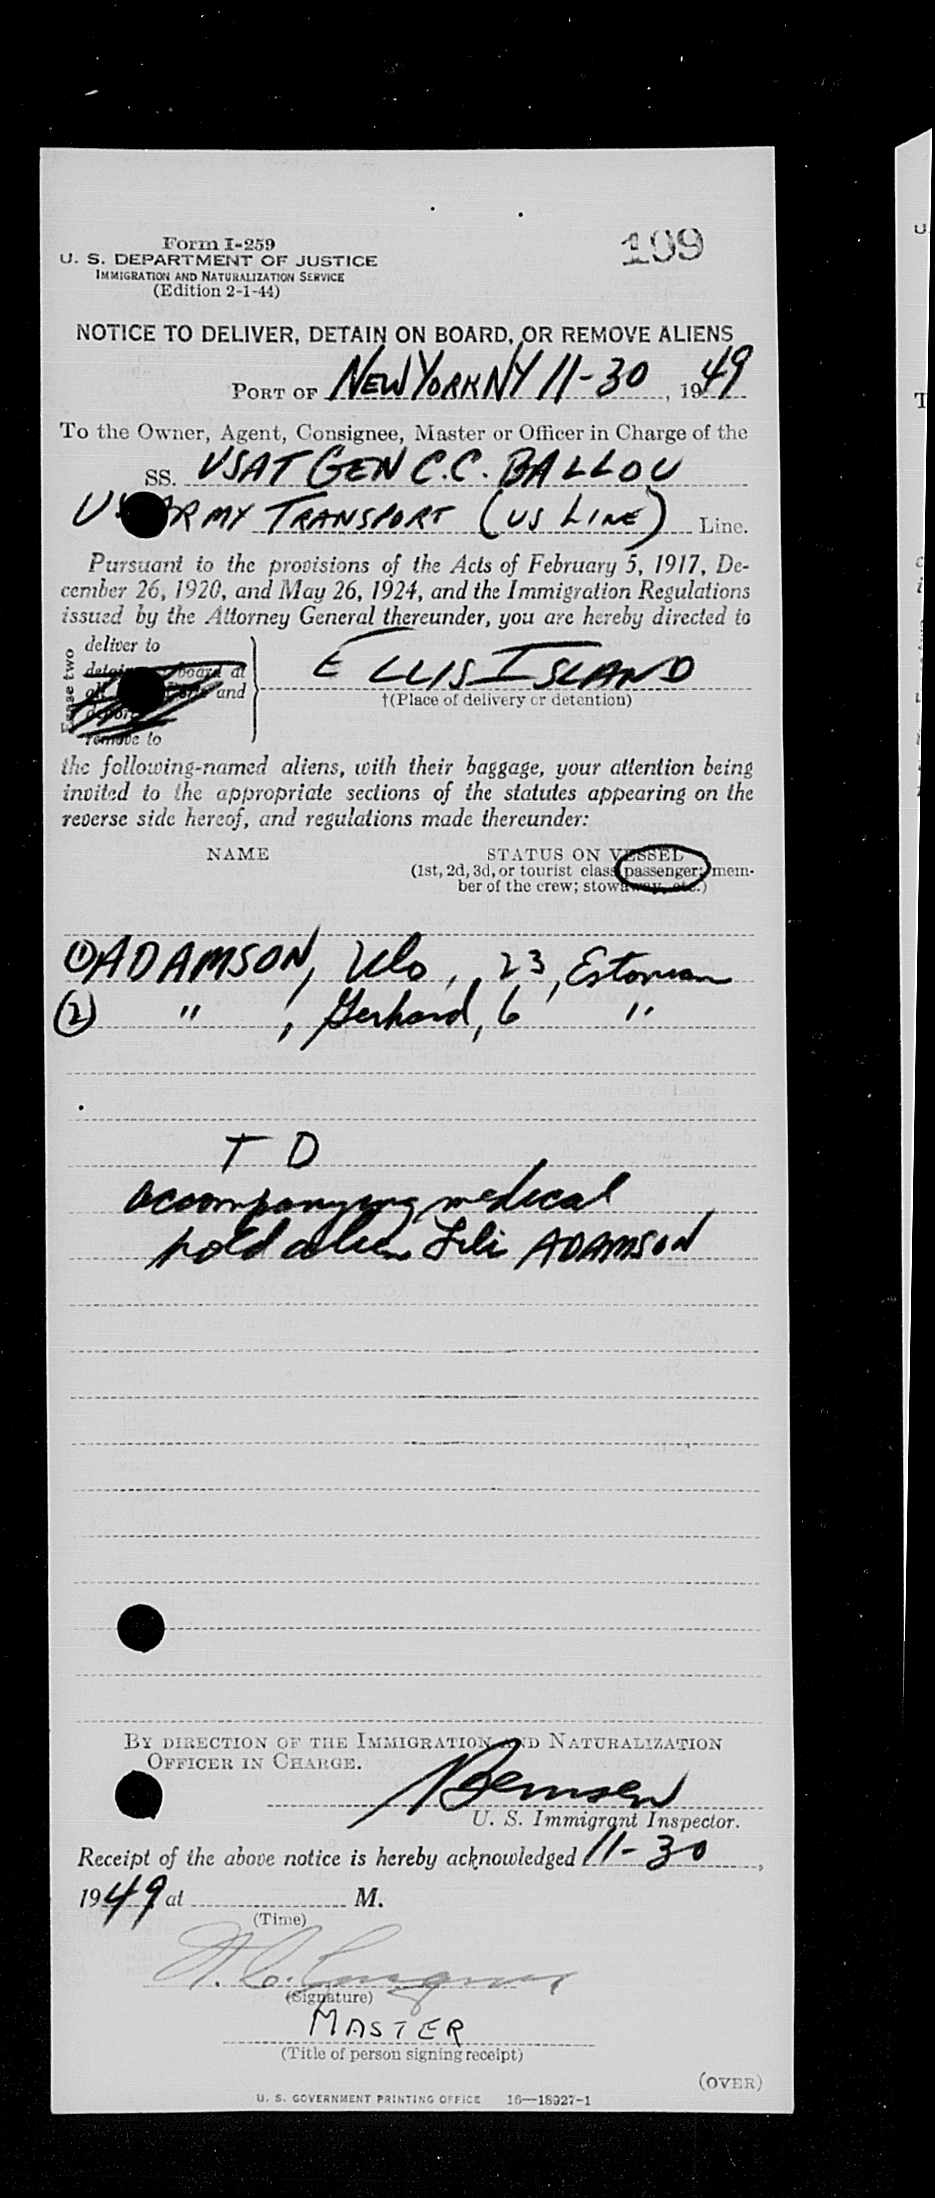 Form I-259
U. S. DEPARTMENT OF JUSTICE
IMMIGRATION AND NATURALIZATION SERVICE
(Edition 2-1-44)
109
NOTICE TO DELIVER, DETAIN ON BOARD, OR REMOVE ALIENS
PORT OF NEW YORK NY 11-30, 1949
To the Owner, Agent, Consignee, Master or Officer in Charge of the
SS. USAT GEN C.C. BALLOU
US ARMY TRANSPORT (US LINE) Line.
Pursuant to the provisions of the Acts of February 5, 1917, De-
cember 26, 1920, and May 26, 1924, and the Immigration Regulations
issued by the Attorney General thereunder, you are hereby directed to
deliver to
board at
and
remove to
ELLIS ISLAND
†(Place of delivery or detention)
the following-named aliens, with their baggage, your attention being
invited to the appropriate sections of the statutes appearing on the
reverse side hereof, and regulations made thereunder:
NAME
STATUS ON VESSEL
(1st, 2d, 3d, or tourist class passenger; mem-
ber of the crew; stowaway, etc.)
(1) ADAMSON, Ulo, 23, Estonian
(2) " , Gerhard, 6 "
T D
accompanying medical
hold alien Lili ADAMSON
BY DIRECTION OF THE IMMIGRATION AND NATURALIZATION
OFFICER IN CHARGE.
U. S. Immigrant Inspector.
Receipt of the above notice is hereby acknowledged 11-30,
1949 at M.
(Time)
(Signature)
MASTER
(Title of person signing receipt)
(OVER)
U. S. GOVERNMENT PRINTING OFFICE 16—18927-1